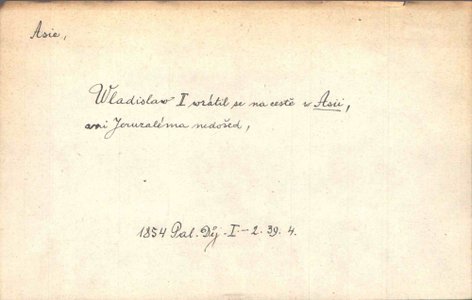 Asie,
Wladislaw I wrátil se na cestě v Asii,
ani Jeruzaléma nedošed,
1854 Pal. Děj. I-2. 39. 4.